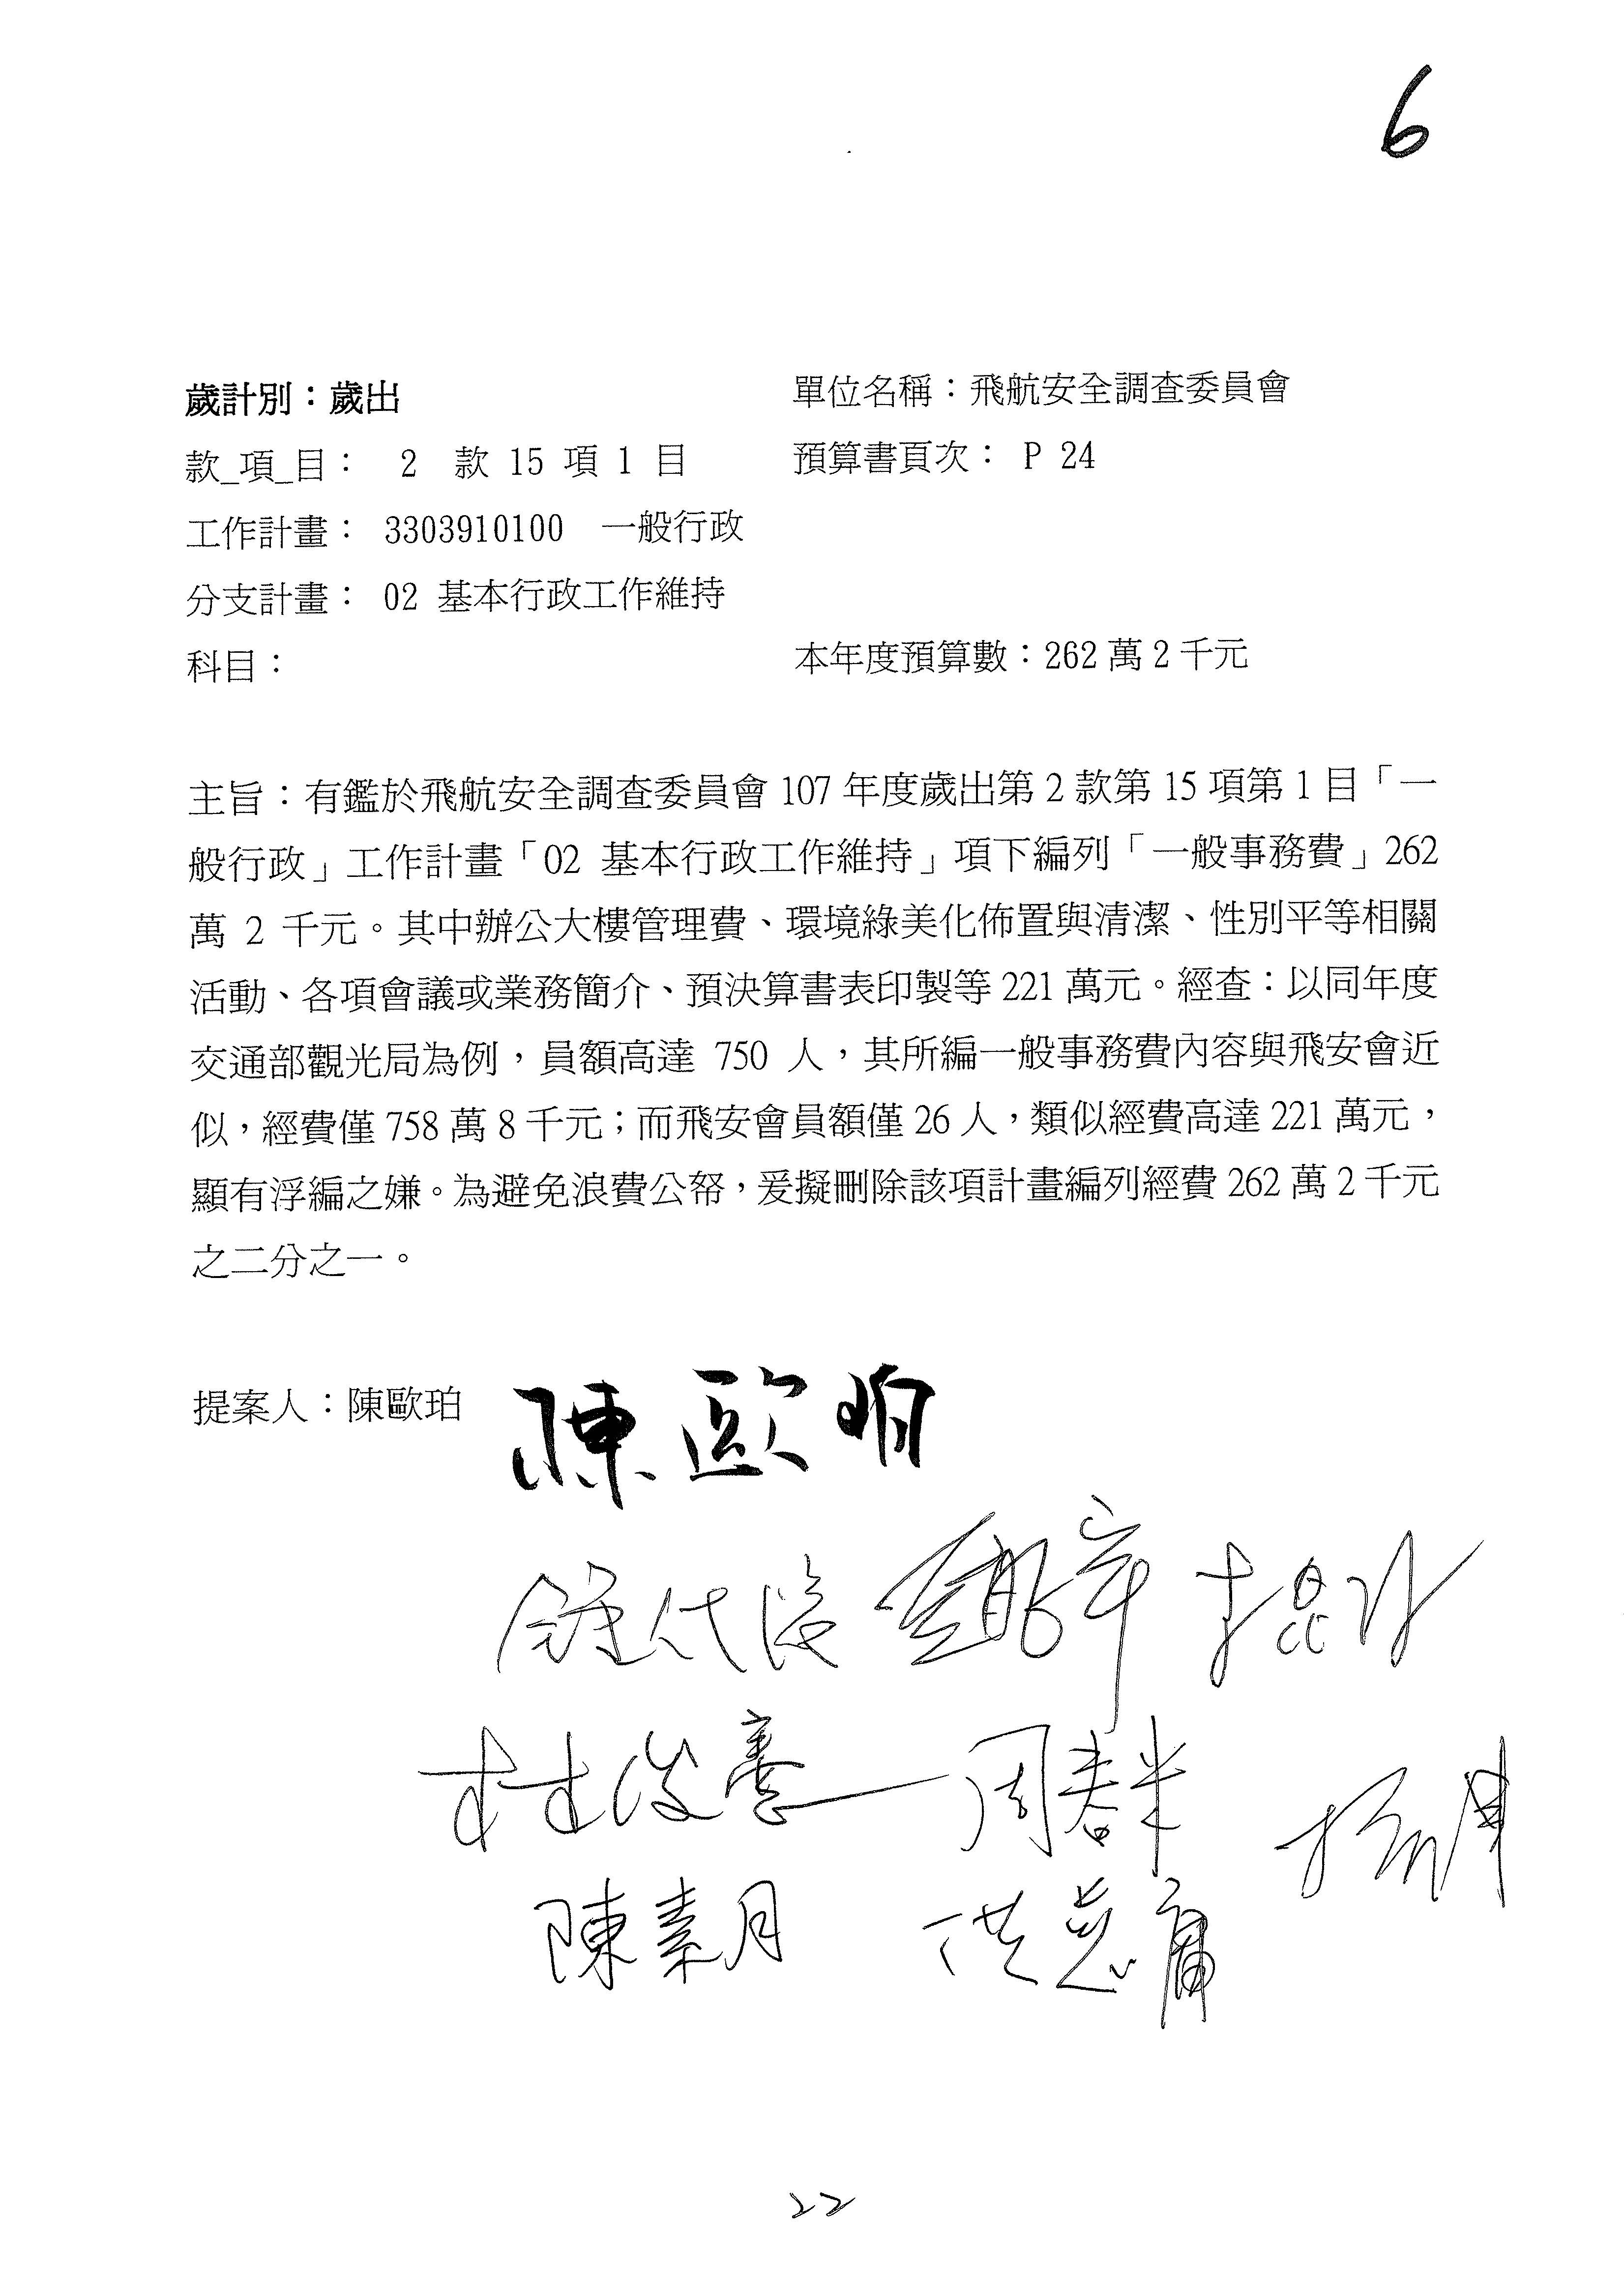 6
歲計別：歲出 單位名稱：飛航安全調查委員會
款_項_目： 2 款 15 項 1 目 預算書頁次： P 24
工作計畫： 3303910100 一般行政
分支計畫： 02 基本行政工作維持
科目： 本年度預算數：262 萬 2 千元
主旨：有鑑於飛航安全調查委員會 107 年度歲出第 2 款第 15 項第 1 目「一
般行政」工作計畫「02 基本行政工作維持」項下編列「一般事務費」262
萬 2 千元。其中辦公大樓管理費、環境綠美化佈置與清潔、性別平等相關
活動、各項會議或業務簡介、預決算書表印製等 221 萬元。經查：以同年度
交通部觀光局為例，員額高達 750 人，其所編一般事務費內容與飛安會近
似，經費僅 758 萬 8 千元；而飛安會員額僅 26 人，類似經費高達 221 萬元，
顯有浮編之嫌。為避免浪費公帑，爰擬刪除該項計畫編列經費 262 萬 2 千元
之二分之一。
提案人：陳歐珀 陳歐珀
陳素月 洪慈庸
22